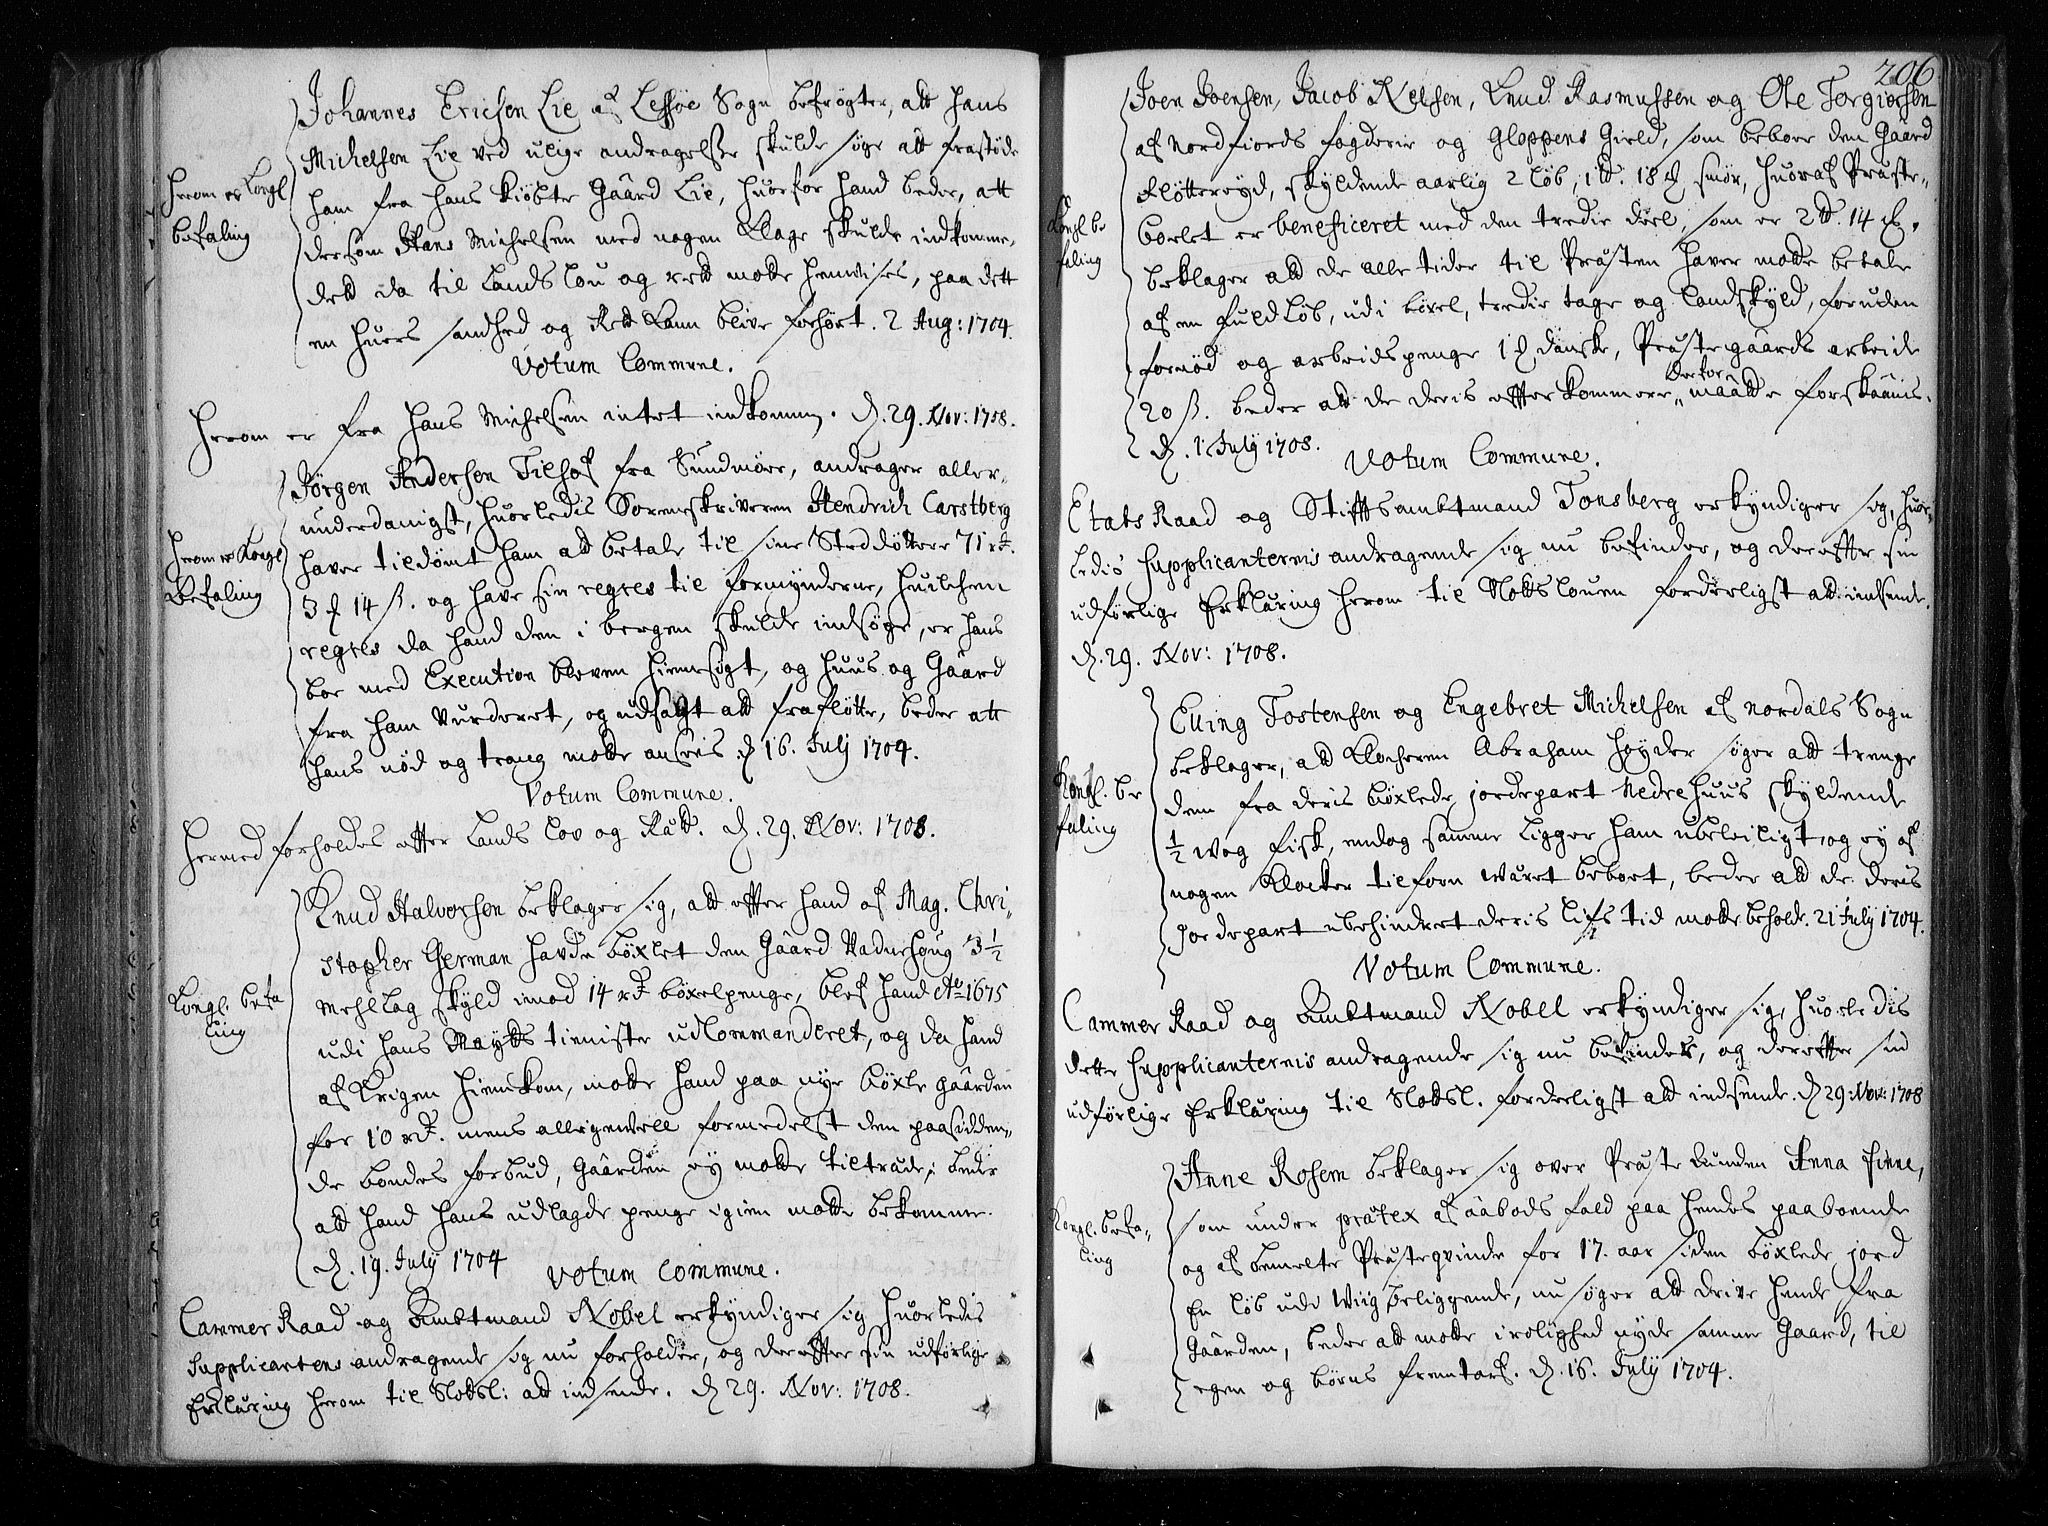 Johannes Ericksen Lie af Lessøe Sogn befrygter, att hans
Michelsen Lie ved ulige andragelsse skulde søge att frastøde
ham fra hans kiøbte Gaard Lie, huorfor hand beder, att
Herom er Kongl
befaling
dersom Hans Michelsen med nogen klage skulde indkomme,
dett da til Landslou og rett motte henvises, paa dett
en huers sandhed og Rett kand blive forhørt. 2 Aug: 1704.
Votum Commune.
Herom er fra Hans Michelsen intet indkommen. D. 29. Nov: 1708.
Jørgen Andersen fra Sundmøer, andrager aller-
underdanigst, huorledis Sorenskriveren Hendrich Carstberg
Herom er Kongl
Befaling
haver tildømt ham att betale til sine Steddøttere 71 rd.
3 14 ß. og have sin regres til formynderne, huilchen
regres da hand den i bergen skulde indsøge, er hans
boe med Execution bleven hiemsøgt, og huus og Gaard
fra ham Vurderet, og udsagt att frafløtte, beder att
hans nød og trang motte ansees D 16. July 1704.
Votum Commune.
Hermed forholdes effter Lands Lov og Rett. D. 29. Nov: 1708.
Knud Halvorsen beklager sig, att effter hand af Mag. Chri-
stopher German havde bøxlet den Gaard 3 1/2
Mehllag skyld imod 14 rd bøxelpenge, blef hand Ao 1675
Kongl. befa
ling
udi Hans Maytts tienniste udcommanderet, og da hand
af Krigen hiemkom, motte hand paa nye bøxle gaarden
for 10 rd. mens alligevell formedelst den paasidden-
de bondes forbud, Gaarden ey motte tiltræde; beder
att hand hans udlagde penge igien motte bekomme.
D. 19. July 1704
Votum Commune.
Cammer Raad og Ambtmand Nobel erkyndiger sig huorledis
Supplicantens andragende sig nu forholder, og dereffter sin udførlige
Erklæring herom til Slotsl: att indsende. D 29. Nov: 1708.
206
Joen Joensen, Jacob Nelsen, Knud Rasmussen og Ole Torgiersen
af Nordfiords fogderie og Gloppens Gield, som beboer den Gaard
Fløtterøyd, skyldende aarlig 2 Løb, 1 18 smør, huoraf Præste-
Kongl. be
faling
bolet er beneficeret med den tredie deel, som er 2 14
beklager att de alle tider til Præsten haver motte betale
af en fuld Løb, udi bøxel, tredie tage og landskyld, foruden
fornød og arbeidspenge 1 danske, Præstegaards arbeide
20 ß. beder att de deris effterkommere derfor maatte forskaanis.
D. 1 July 1708.
Votum Commune.
Etats Raad og Stifftsambtmand Tonsberg erkyndiger sig, huor-
ledis Supplicanternis andragende sig nu befinder, og dereffter sin
udførlige Erklæring herom til Slottslouen forderligst att indsende.
D. 29. Nov: 1708.
Elling Tostensen og Engebret Michelsen af Nordals Sogn
beklager, att Klocheren Abraham Høyder søger att trenge
Kongl. be
faling
dem fra deris bøxlede jordepart Nedrehuus skyldende
1/2 wog fisk, endog samme ligger ham ubeleiligt, og ey af
nogen Klocker tilforn været beboet, beder att de deris
Jordepart ubehindret deris lifs tid motte beholde. 21 July 1704.
Votum Commune.
Cammer Raad og Ambtmand Nobel erkyndiger sig, huorledis
dette Supplicanternis andragende sig nu befinder, og dereffter sin
udførlige Erklæring til Slottsl. forderligst att indsende. D 29: Nov: 1708
Anne Rosem beklager sig over Præste Enken Anna Finne,
som under prætex af aabods fald paa hendes paaboende
Kongl. befa-
ling
og af bemelte Præsteqvinde for 17. aar siden bøxlede jord
En Løb udi Wiig beliggende, nu søger att drive hende fra
Gaarden, beder att motte i rolighed nyde samme Gaard, til
egen og børns fremtarf. D. 16. July 1704.